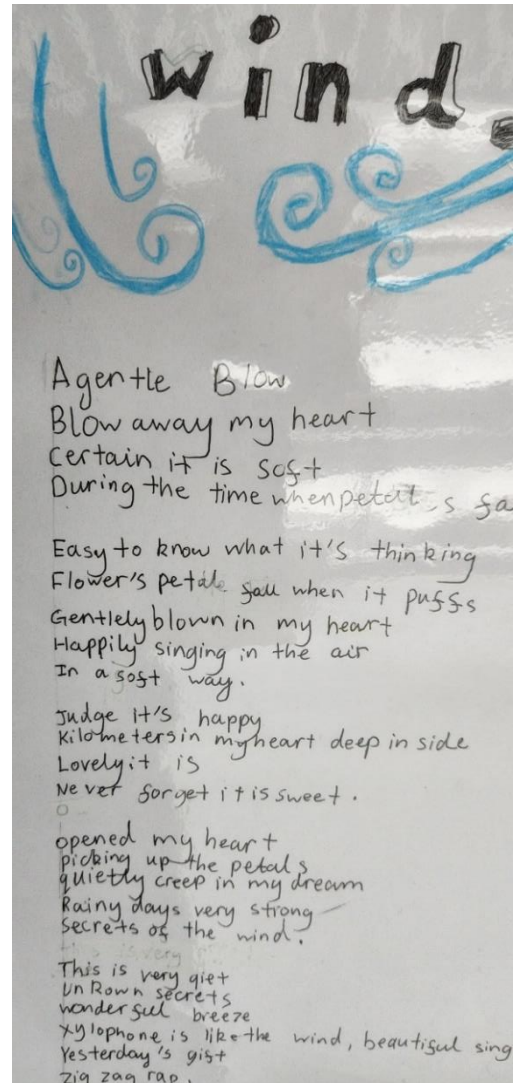 wind.
Agentle Blow
Blow away my heart
Certain it is soft
During the time when petal s fa
Easy to know what it's thinking
Flower's petals fall when it puffs
Gentlely blown in my heart
Happily singing in the air
In a soft way.
Judge it's happy
Kilometers in my heart deep in side
Lovely it is
Never forget it is sweet.
opened my heart
picking up the petals
quietly creep in my dream
Rainy days very strong
Secrets of the wind.
This is very qiet
UnKown secrets
wonderful breeze
xylophone is like the wind, beautiful sing
Yesterday's gift
zig zag rap.